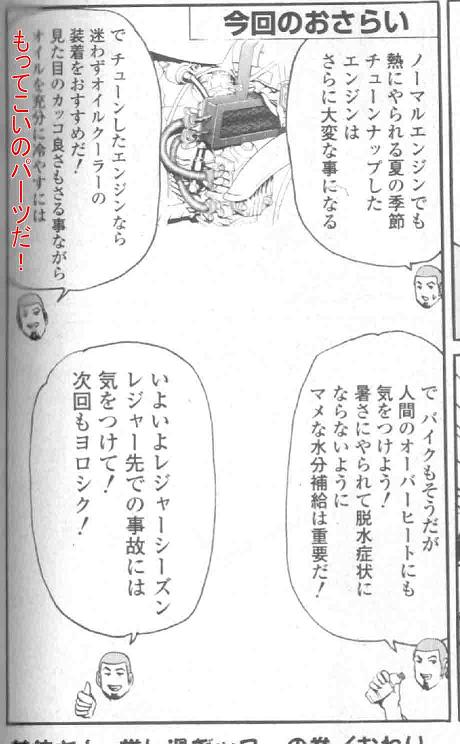 今回のおさらい
ノーマルエンジンでも
熱にやられる夏の季節
チューンナップした
エンジンは
さらに大変な事になる
で チューンしたエンジンなら
迷わずオイルクーラーの
装着をおすすめだ！
見た目のカッコ良さもさる事ながら
オイルを充分に冷やすには
もってこいのパーツだ！
で バイクもそうだが
人間のオーバーヒートにも
気をつけよう！
暑さにやられて脱水症状に
ならないように
マメな水分補給は重要だ！
いよいよレジャーシーズン
レジャー先での事故には
気をつけて！
次回もヨロシク！